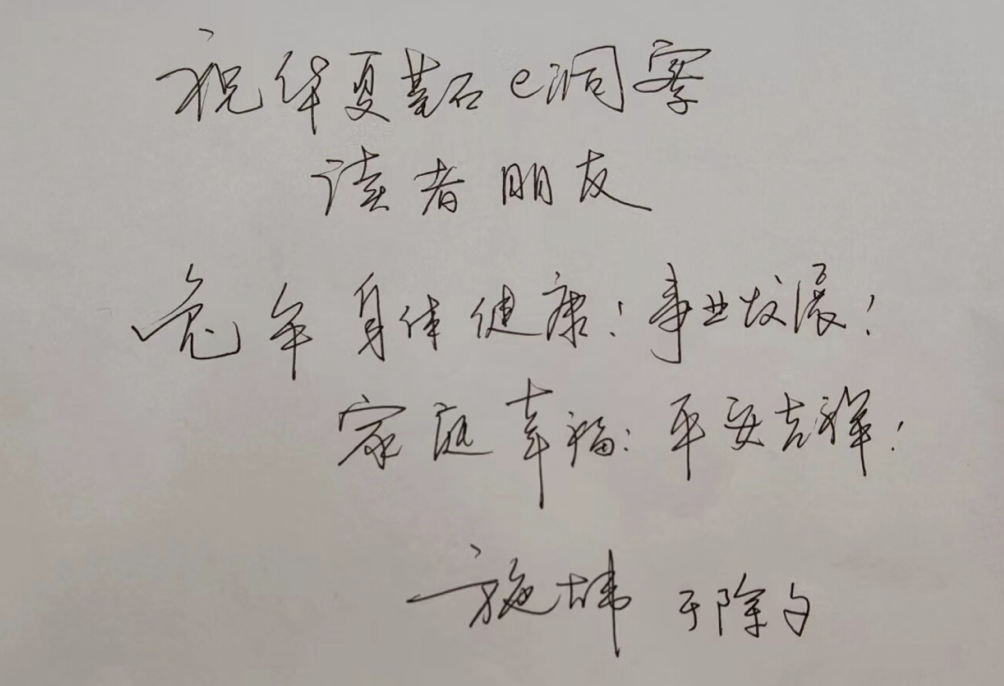 祝华夏基石e洞察
读者朋友
兔年身体健康！事业发展！
家庭幸福！平安吉祥！
施炜 于除夕